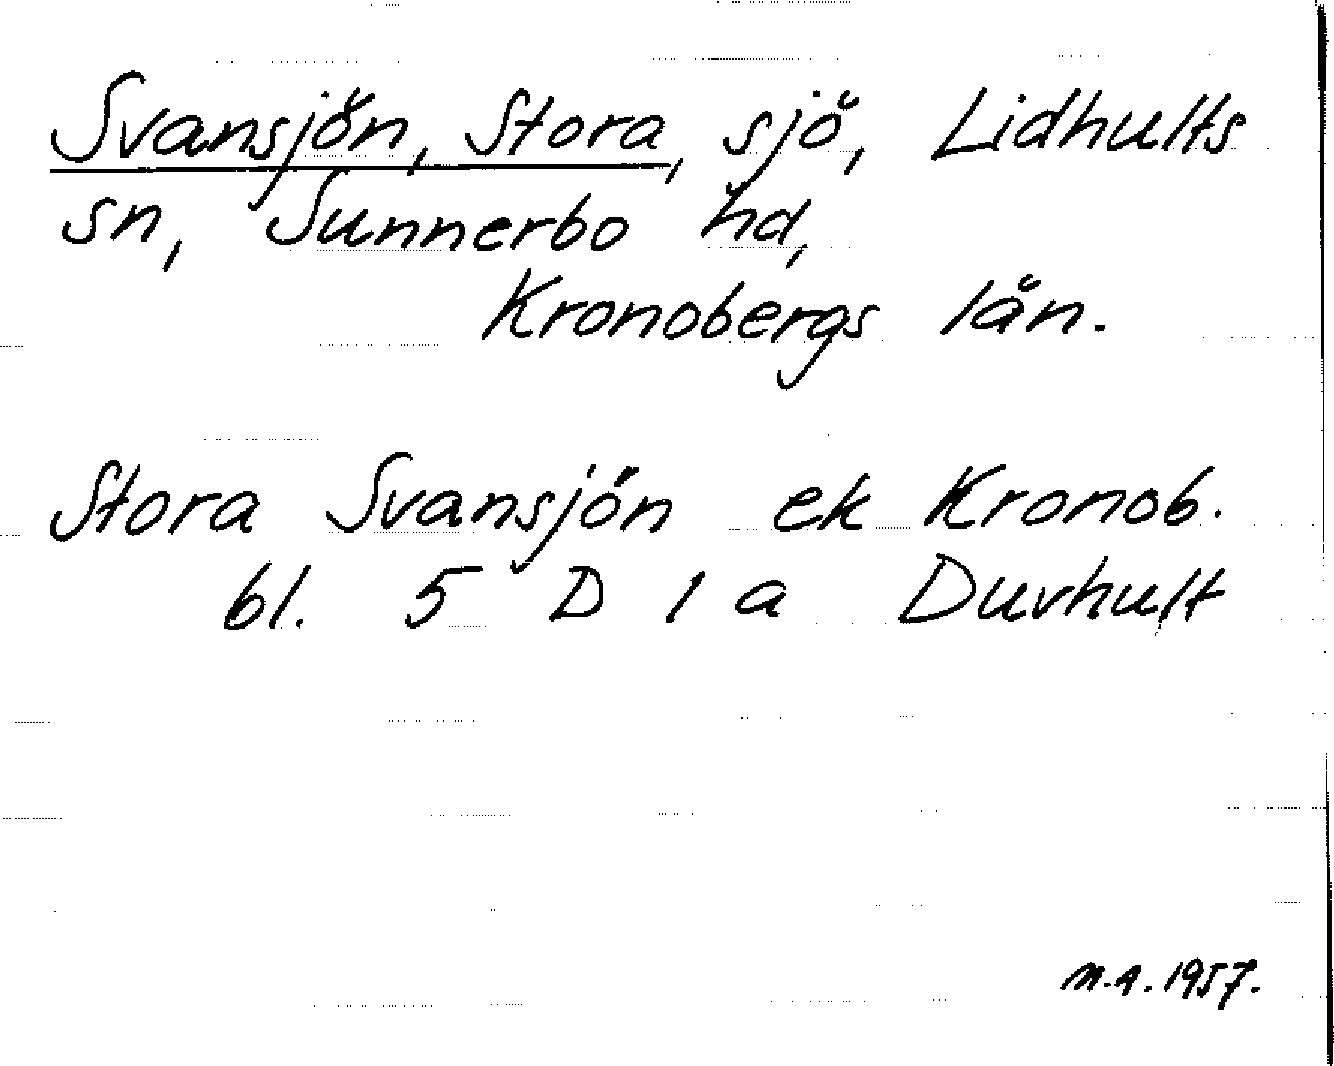 Svansjön, Stora, sjö, Lidhults
sn, Sunnerbo hd,
Kronobergs län.
Stora Svansjön ek Kronob.
bl. 5 D 1 a Duvhult
M.A. 1957.